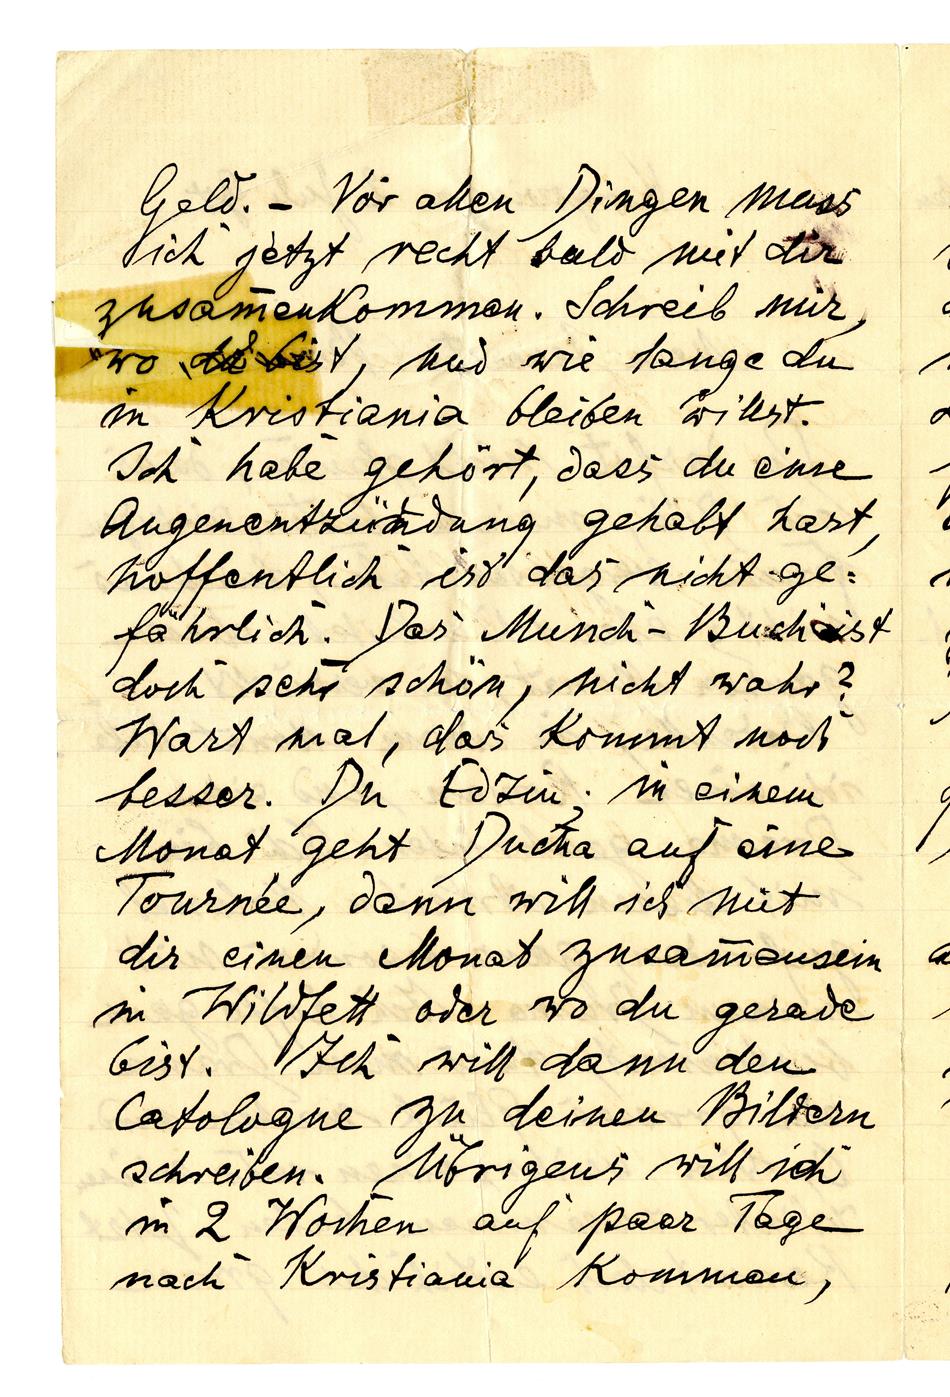 Geld. – Vor allen Dingen muss
ich jetzt recht bald mit dir
zusam̅enkommen. Schreib mir,
wo du bist, und wie lange du
in Kristiania bleiben willst.
Ich habe gehört, dass du eine
Augenentzündung gehabt hast,
hoffentlich ist das nicht ge=
fährlich. Das Munch-Buch ist
doch sehr schön, nicht wahr?
Wart mal, das kommt noch
besser. Du Edzin; in einem
Monat geht Ducha auf eine
Tournée, dann will ich mit
dir einen Monat zusam̅ensein
in Wildfett oder wo du gerade
bist. Ich will dann den
Catologue zu deinen Bildern
schreiben. Übrigens will ich
in 2 Wochen auf paar Tage
nach Kristiania kommen,